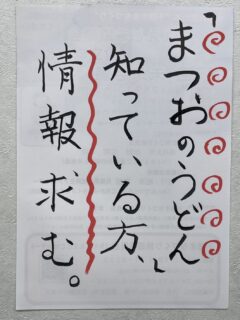 「まつおのうどん」
知っている方、
情報求む。